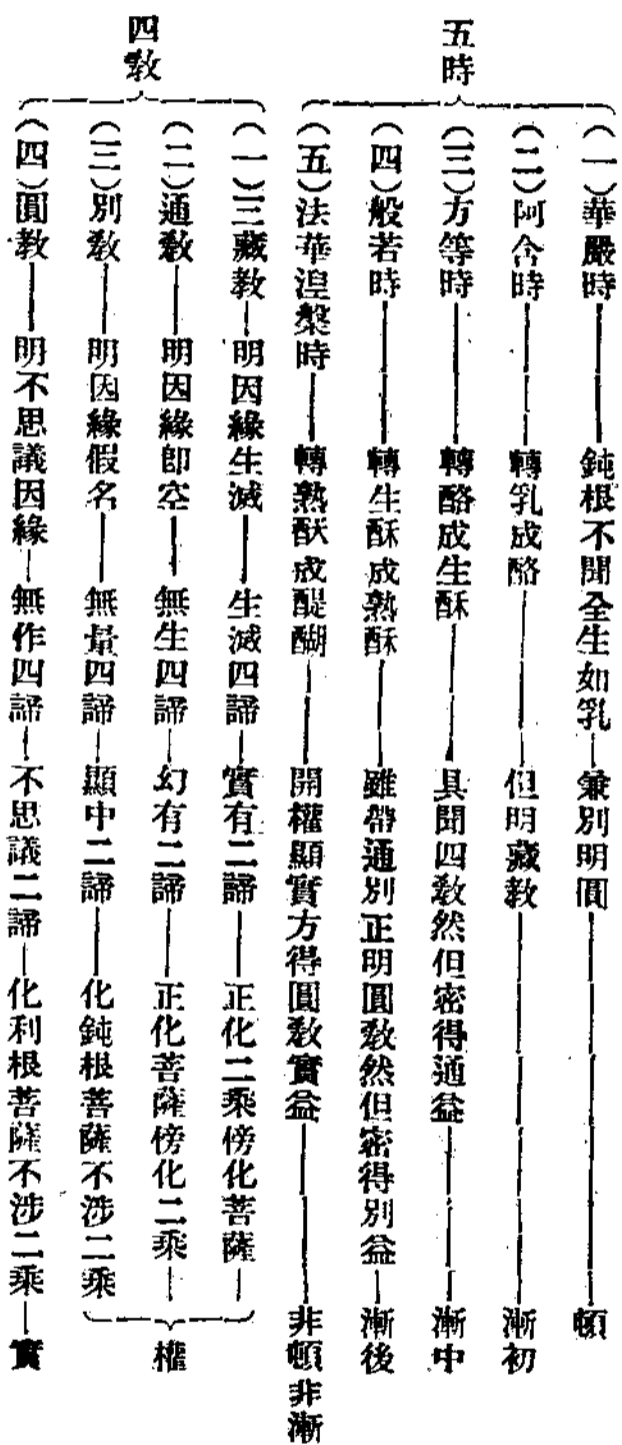 五時
(一)華嚴時——鈍根不聞全生如乳—兼別明圓——頓
(二)阿含時——轉乳成酪——但明藏敎——漸初
(三)方等時——轉酪成生酥——具聞四敎然但密得通益——漸中
(四)般若時——轉生酥成熟酥——雖帶通別正明圓敎然但密得別益—漸後
(五)法華涅槃時——轉熟酥成醍醐——開權顯實方得圓敎實益——非頓非漸
四敎
(一)三藏敎—明因緣生滅——生滅四諦—實有二諦——正化二乘傍化菩薩—
(二)通敎——明因緣卽空——無生四諦—幻有二諦——正化菩薩傍化二乘—
(三)別敎——明因緣假名——無量四諦—顯中二諦——化鈍根菩薩不涉二乘
權
(四)圓敎——明不思議因緣—無作四諦—不思議二諦—化利根菩薩不涉二乘—實